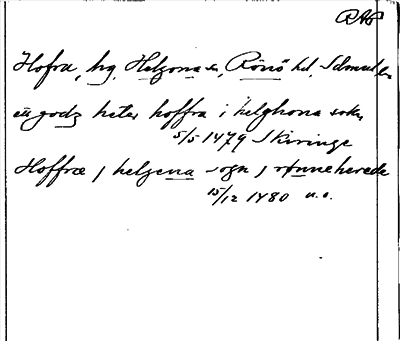 RAP
Hofra, hg, Helgona sn, Rönö hd, Sdmnl. ln
eit godz heter hoffra i helghona sokn
5/5 1479 Skeninge
Hoffra j helgena sogn j rønneherede
15/12 1480 u.o.